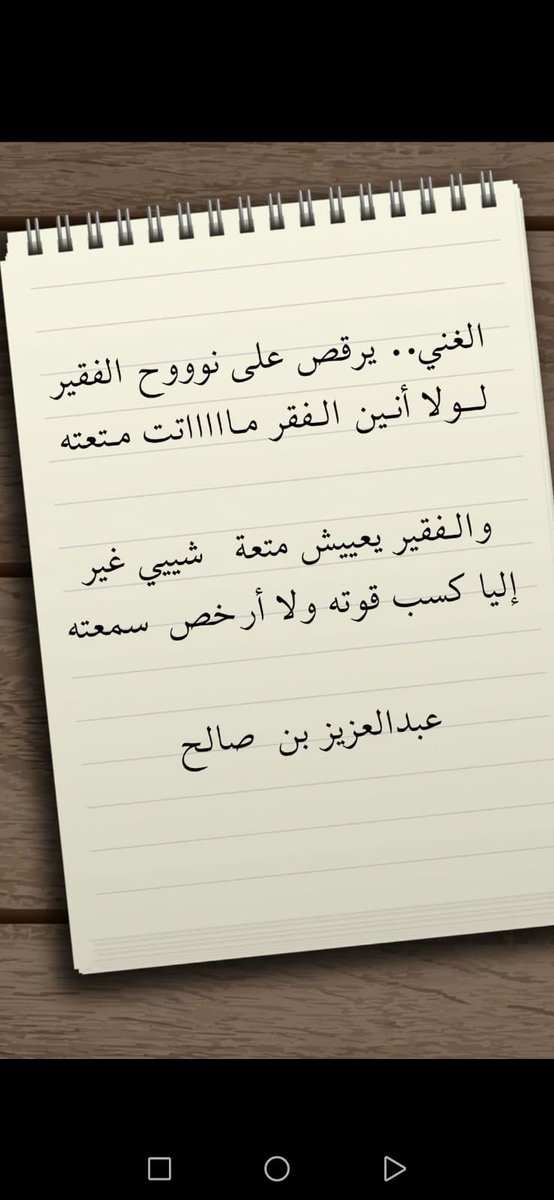 الغني.. يرقص على نوووح الفقير
لـولا أنـين الـفقر مـاااااتت مـتعته
والـفقير يعييش متعة شييي غير
إليا كسب قوته ولا أرخص سمعته
عبدالعزيز بن صالح